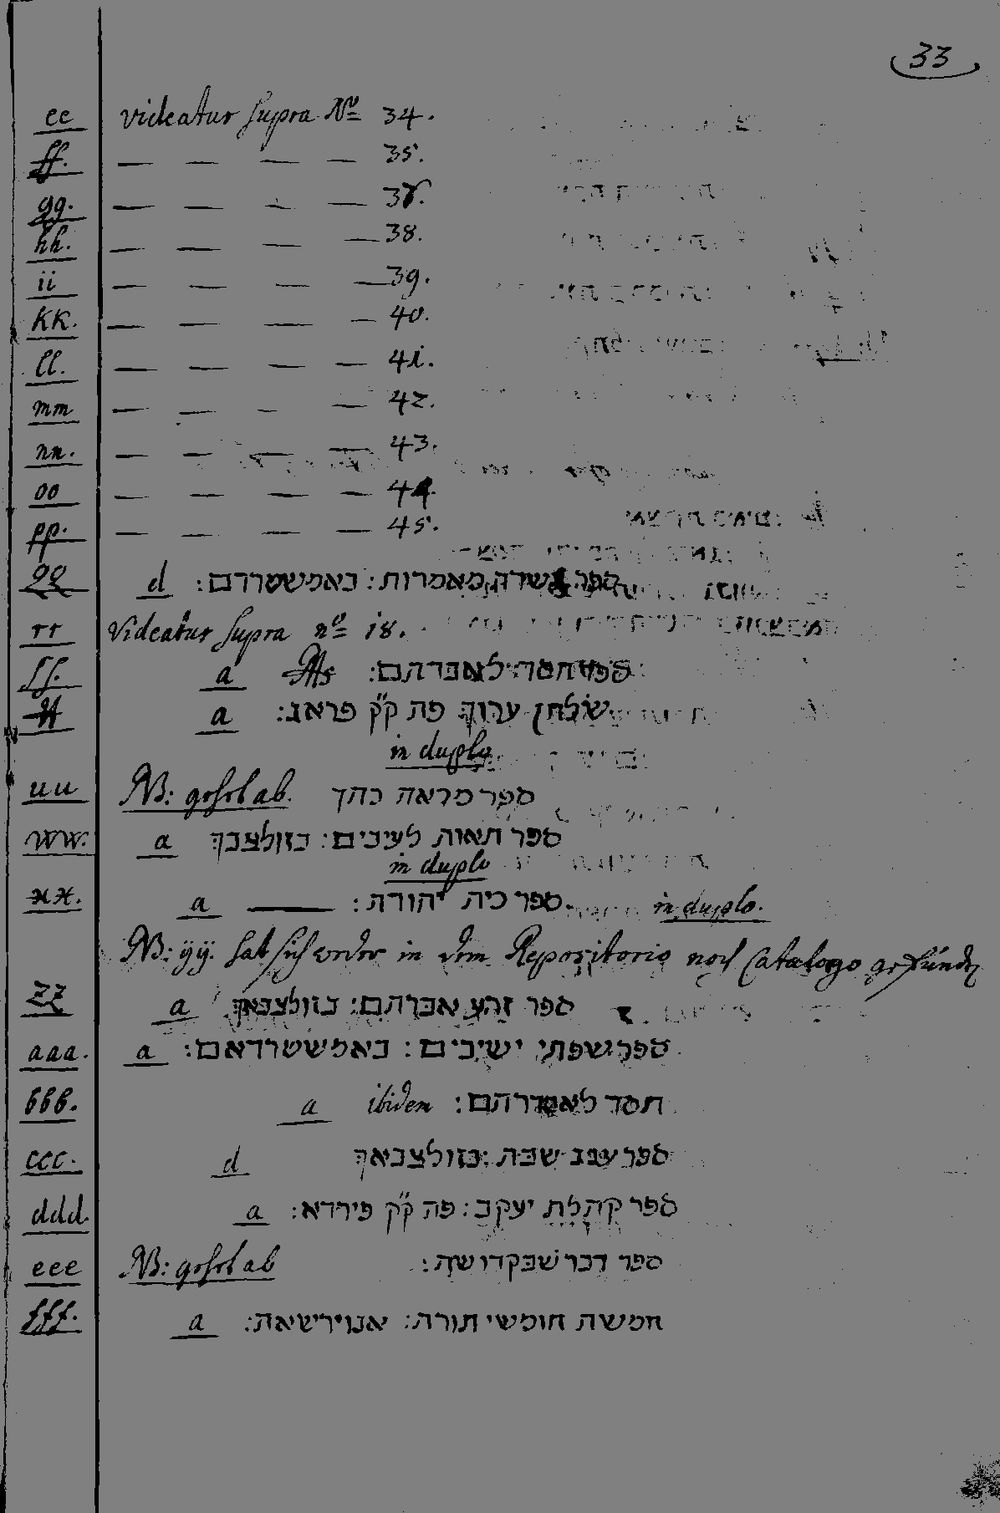 33
ee videatur supra No 34.
ff. — — — — 35.
gg. — — — — 37.
hh. — — — — 38.
ii — — — — 39.
kk. — — — — 40.
ll. — — — — 41.
mm — — — — 42.
nn. — — — — 43.
oo — — — — 44.
pp. — — — — 45.
qq d ספר עשרה מאמרות: באמשטרדם:
rr videatur supra no 18.
ss. a ספר חסד לאברהם:
tt a שולחן ערוך פה ק"ק פראג:
in duplo
uu NB: gehet ab. ספר מראה כהן
ww. a ספר תאות לעינים: בזולצבך
in duplo
xx. a —— ספר בית יהודה: in duplo.
NB: yy. hat sich weder in dem Repositorio noch Catalogo gefunden
zz a ספר זרע אברהם: בזולצבאך
aaa. a ספר שפתי ישינים: באמשטרדאם:
bbb. a ibidem חסד לאברהם:
ccc. d ספר ענג שבת: בזולצבאך
ddd. a ספר קהלת יעקב: פה ק"ק פירדא:
eee NB: gehet ab ספר דבר שבקדושה:
fff. a חמשה חומשי תורה: